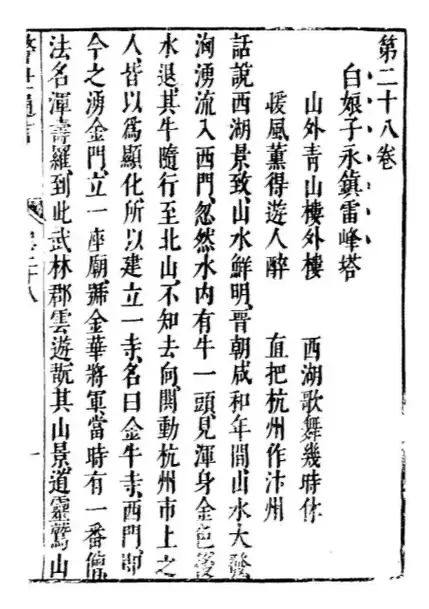 第二十八卷
白娘子永鎮雷峰塔
山外青山樓外樓　西湖歌舞幾時休
暖風薰得遊人醉　直把杭州作汴州
話說西湖景致、山水鮮明、晉朝咸和年間、山水大發
洶湧流入西門、忽然水內有牛一頭、見渾身金色、後
水退、其牛隨行至北山、不知去向、鬨動杭州市上之
人、皆以爲顯化、所以建立一寺、名曰金牛寺、西門、卽
今之湧金門、立一座廟、號金華將軍、當時有一番僧
法名渾壽羅、到此武林郡雲遊、翫其山景、道靈鷲山